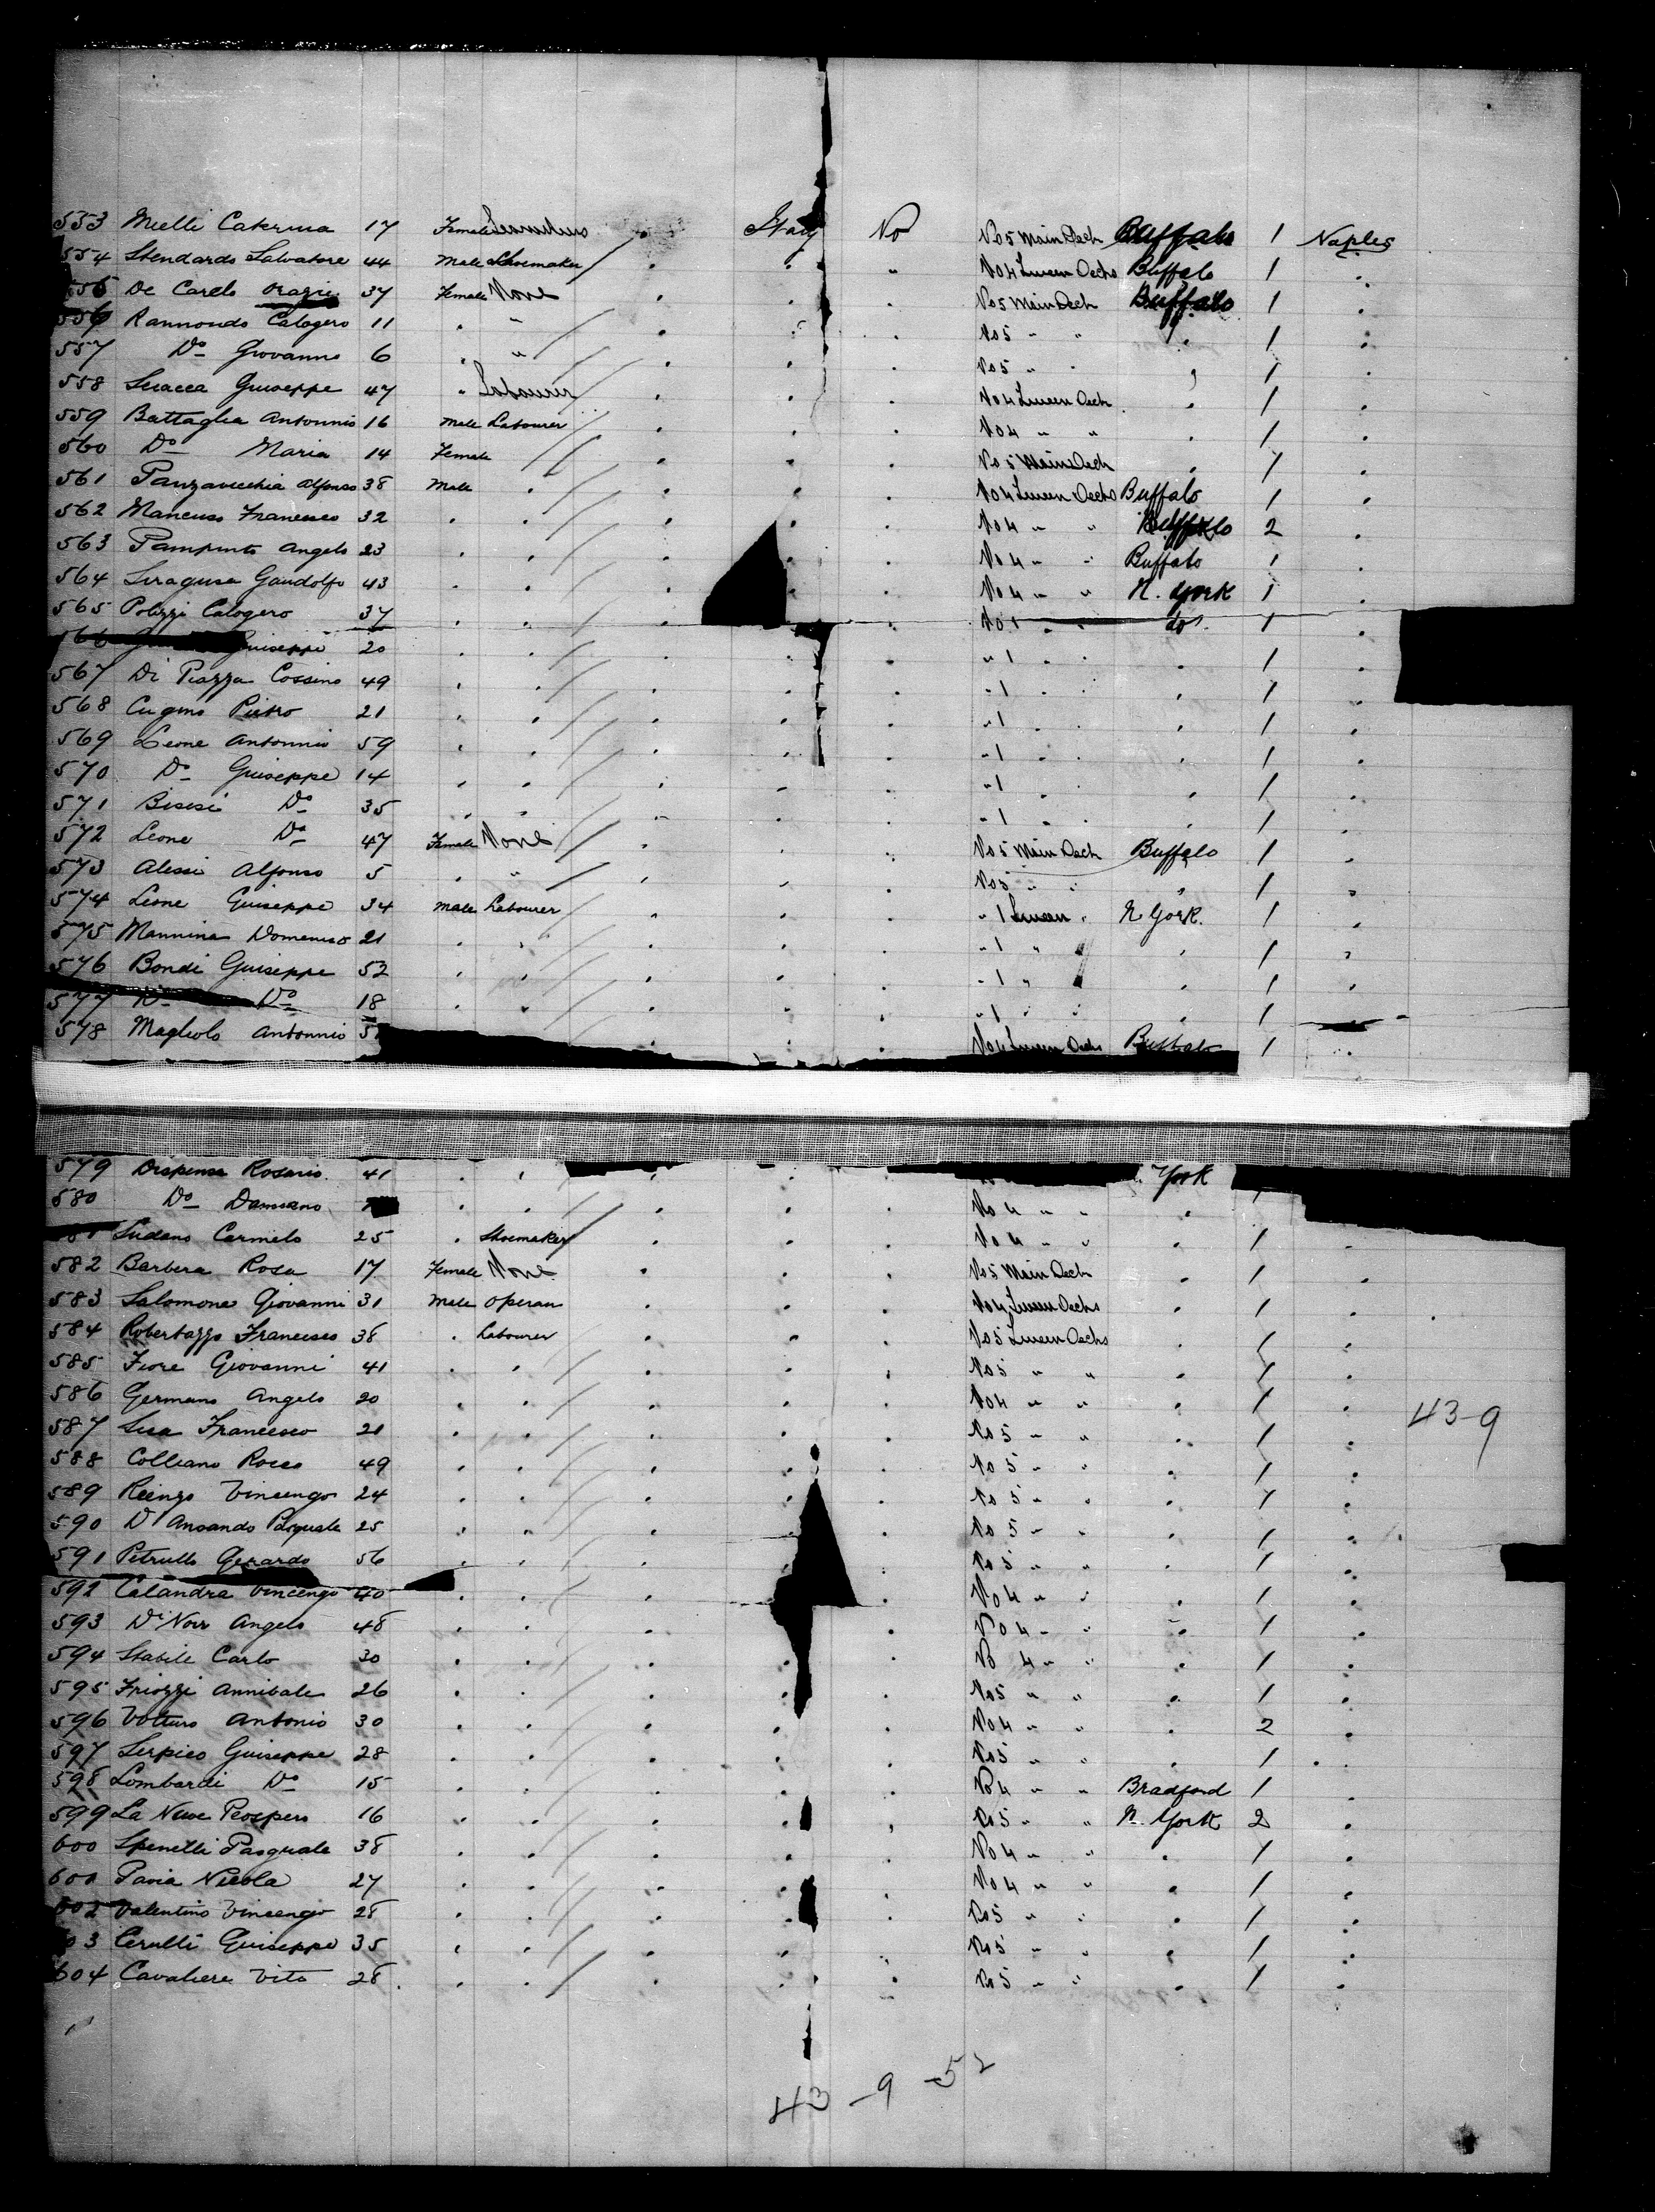 553 Mielli Caterina 17 Female Italy No No 5 Main Deck Buffalo 1 Naples
554 Stendardo Salvatore 44 Male Shoemaker / . . " No 4 Deck Buffalo 1 .
555 De Carlo Orazio 37 Female None . . . No 5 Main Deck Buffalo 1 .
556 Raimondo Calogero 11 . " / . . . No 5 " " . 1 .
557 Do Giovanni 6 . " / . . . No 5 " . , 1 .
558 Sciacca Giuseppe 47 " Labourer / . . . No 4 Deck . 1 .
559 Battaglia Antonnio 16 Male Labourer / . . . No 4 " " . 1 .
560 Do Maria 14 Female / . . . No 5 Main Deck . 1 .
561 Panzavecchia Alfonso 38 Male . / . . . No 4 Decks Buffalo 1 .
562 Mancuso Francesco 32 . . / . . . No 4 " " Buffalo 2 .
563 Pampinto Angelo 23 . . / . . . No 4 " " Buffalo 1 .
564 Siragusa Gandolfo 43 . . / . . . No 4 " " N. York 1 .
565 Polizzi Calogero 37 . . / . . . No 1 . " do 1 .
Giuseppe 20 . . / . . . " 1 . . . 1 .
567 Di Piazza Cossimo 49 . . / . . . " 1 . . . 1 .
568 Cugino Pietro 21 . . / . . . " 1 . . . 1 .
569 Leone Antonnio 59 . . / . . . " 1 . . . 1 .
570 Do Giuseppe 14 . . / . . . " 1 . . . 1 .
571 Bisesi Do 35 . . / . . . " 1 . . . 1 .
572 Leone Da 47 Female None / . . . No 5 Main Deck Buffalo 1 .
573 Alessi Alfonso 5 . " / . . . No 5 " " , 1 .
574 Leone Giuseppe 34 Male Labourer / . . . " 1 . N York. 1 .
575 Mannina Domenico 21 . . / . . . " 1 " . 1 .
576 Bondi Giuseppe 52 . . / . . . " 1 " . 1 .
577 Do Do 18 . . / . . . " 1 " " . 1
578 Magliolo Antonnio . . No 4 Decks Buffalo 1 .
579 Dispensa Rosario 41 . . . . York
580 Do Damiano . . / . . . No 4 " " .
Sudano Carmelo 25 . Shoemaker / . . . No 4 " " . 1 .
582 Barbera Rosa 17 Female None . . . No 5 Main Deck . 1 .
583 Salomone Giovanni 31 Male . . . No 4 Decks . 1 .
584 Robertazzo Francesco 38 . Labourer / . . . No 5 Decks . 1 .
585 Fiore Giovanni 41 . . / . . . No 5 " " . 1 .
586 Germano Angelo 20 . . / . . . No 4 " " . 1 . 43-9
587 Francesco 21 . . / . . . No 5 " " . 1 .
588 Colliano Rocco 49 . . / . . . No 5 " " . 1 .
589 Rienzo Vincenzo 24 . . / . . . No 5 " " . 1 .
590 D'Ansando Pasquale 25 . . / . . . No 5 " " . 1 .
591 Petrullo Gerardo 56 . . / . . . No 5 " " . 1 .
592 Calandra Vincenzo 40 . . / . . . No 4 " " . 1 .
593 Angelo 48 . . / . . . No 4 " " . 1 .
594 Stabile Carlo 30 . . / . . . No 4 " " . 1 .
595 Friozzi Annibale 26 . . / . . . No 5 " " . 1 .
596 Volturo Antonio 30 . . / . . . No 4 " " . 2 .
597 Serpico Giuseppe 28 . . / . . . No 5 " " . 1 .
598 Lombardi Do 15 . . / . . . No 4 " " Bradford 1 .
599 La Neve Prospero 16 . . / . . . No 5 " " N. York 2 .
600 Spenelli Pasquale 38 . . / . . . No 4 " " . 1 .
601 Pavia Nicola 27 . . / . . . No 4 " " . 1 .
602 Valentino Vincenzo 28 . . / . . . No 5 " " . 1 .
03 Cerulli Giuseppe 35 . . / . . . No 5 " " . 1 .
604 Cavaliere Vito 28 . . / . . . No 5 " " . 1 .
43 - 9 - 52